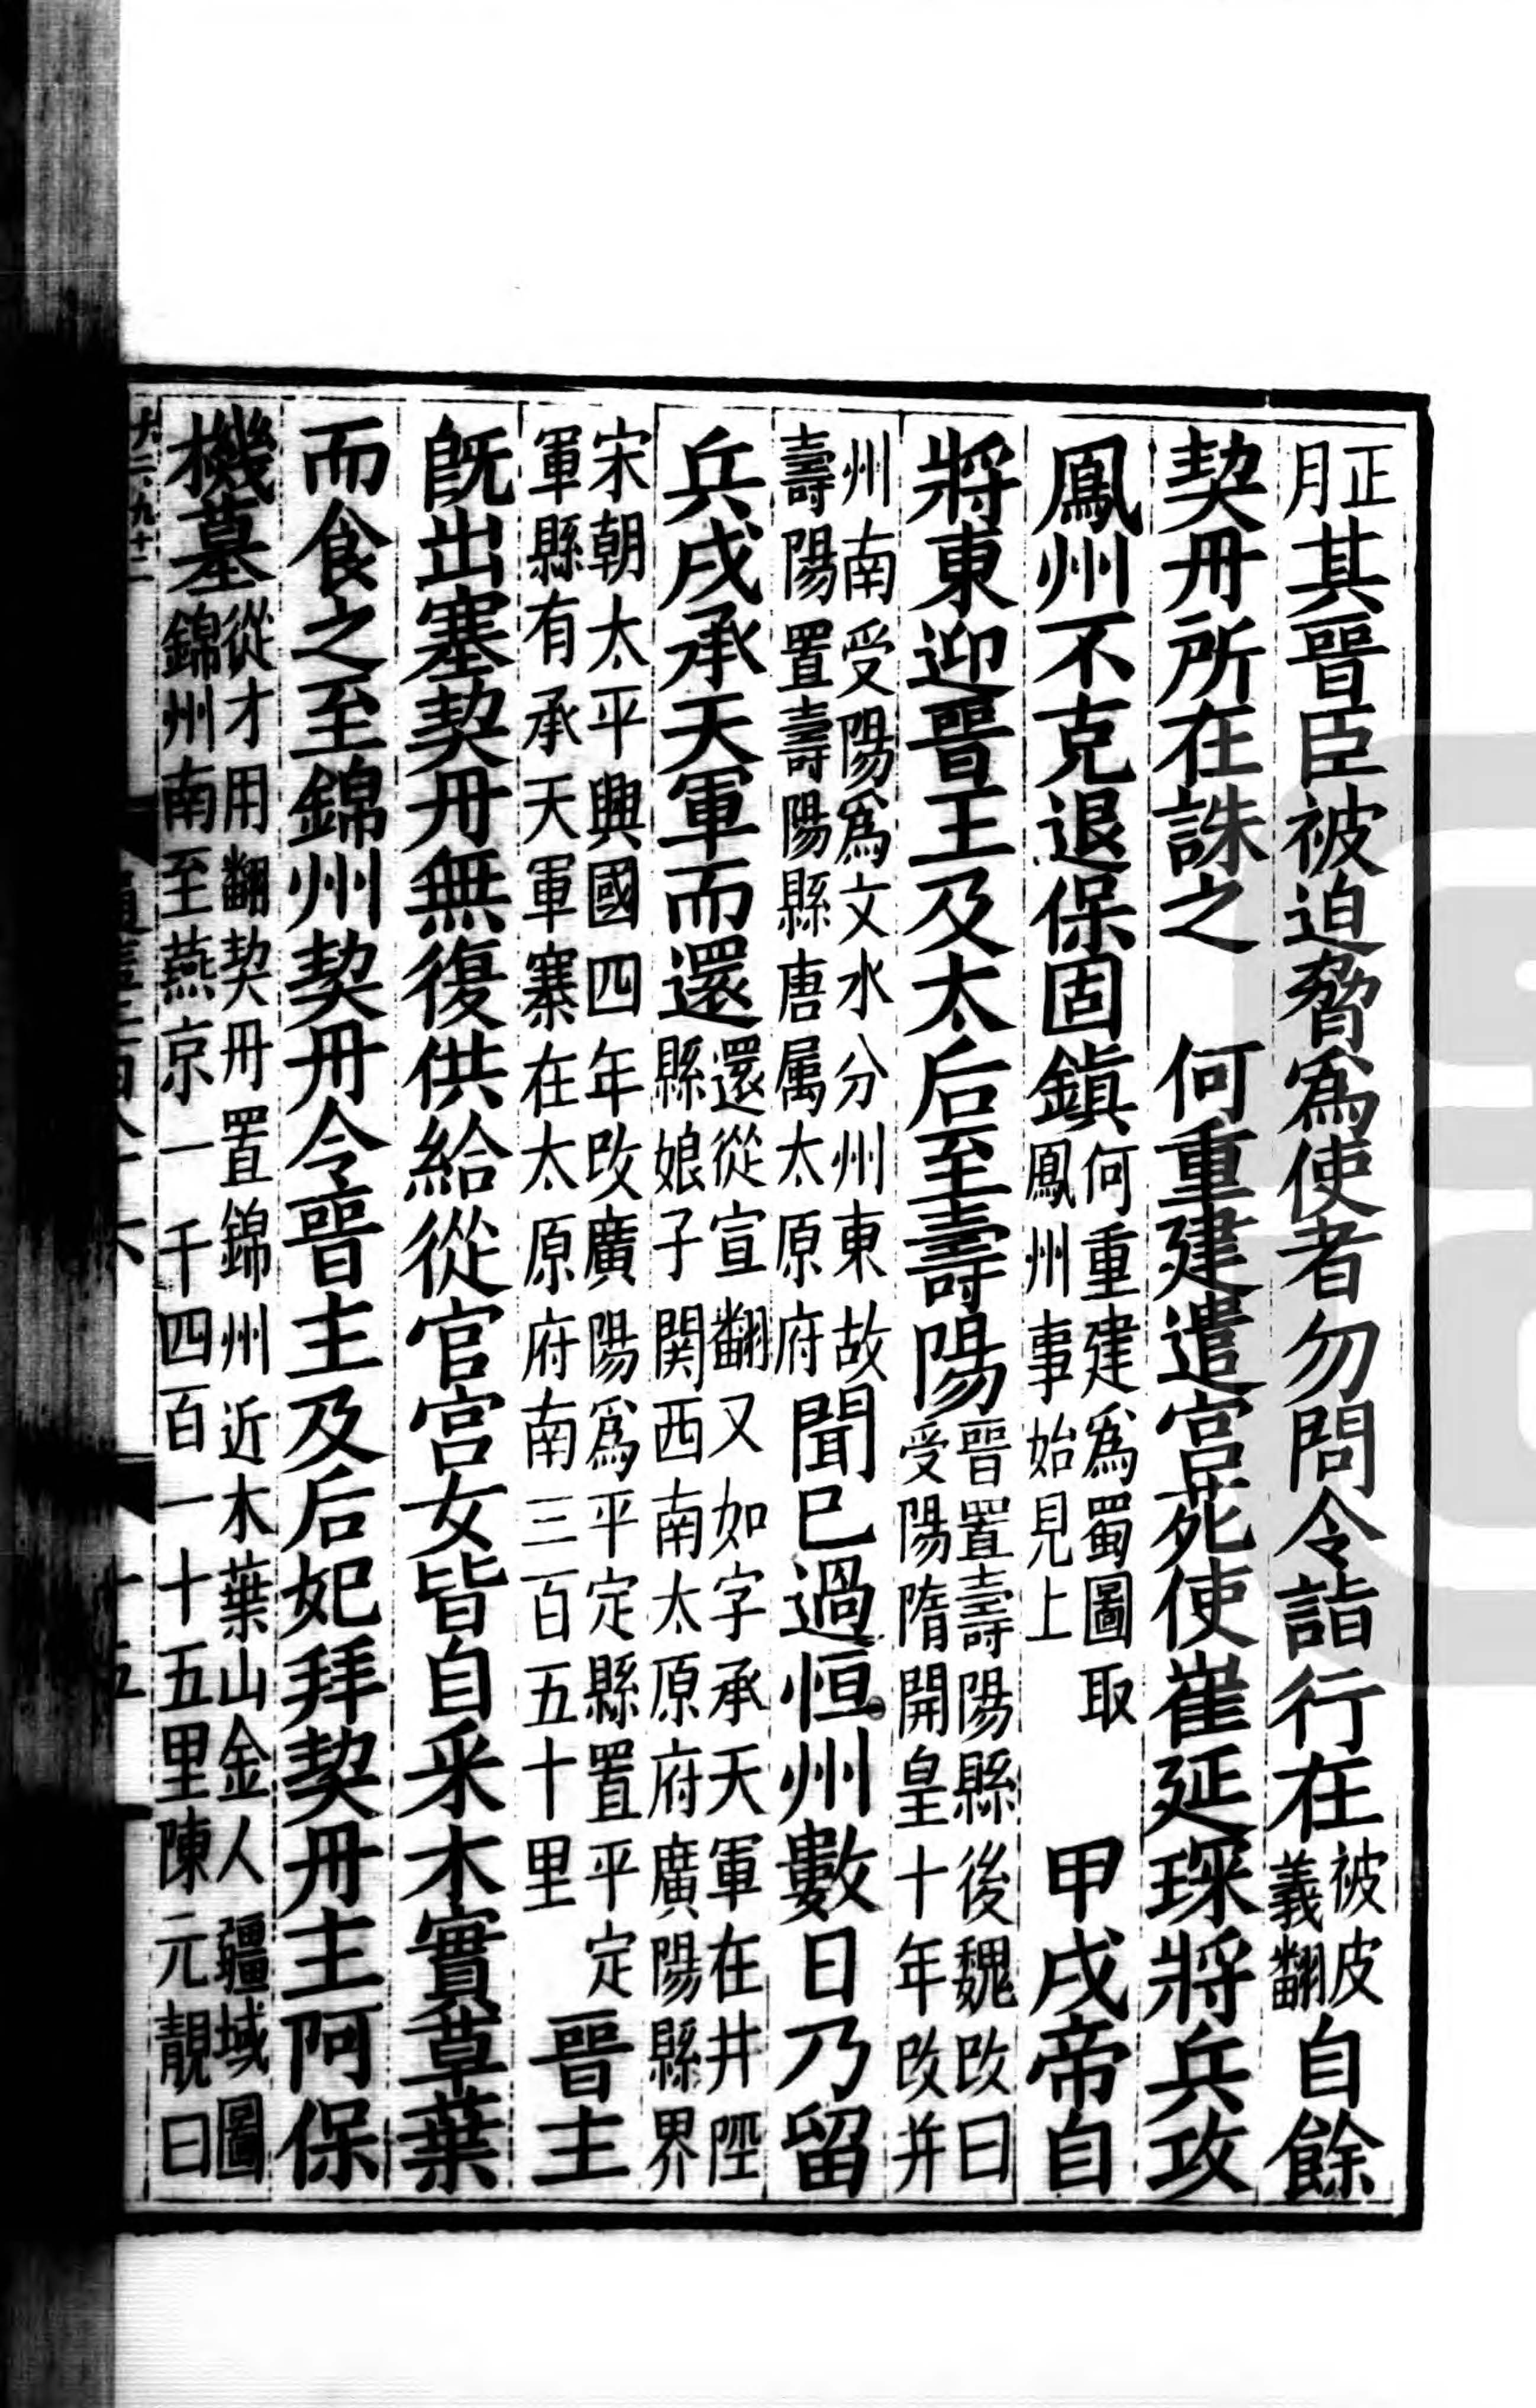 正月其晉臣被迫脅爲使者勿問令詣行在被皮義翻自餘
契丹所在誅之　何重建遣宮苑使崔延琛將兵攻
鳳州不克退保固鎭何重建爲蜀圖取鳳州事始見上　甲戌帝自
將東迎晉王及太后至壽陽晉置壽陽縣後魏改曰受陽隋開皇十年改并
州南受陽爲文水分州東故壽陽置壽陽縣唐属太原府聞已過恒州數日乃留
兵戍承天軍而還還從宣翻又如字承天軍在井陘縣娘子関西南太原府廣陽縣界
宋朝太平興國四年改廣陽爲平定縣置平定軍縣有承天軍寨在太原府南三百五十里　晉主
旣出塞契丹無復供給從官宮女皆自采木實草葉
而食之至錦州契丹令晉主及后妃拜契丹主阿保
機墓從才用翻契丹置錦州近木葉山金人疆域圖錦州南至燕京一千四百一十五里陳元靚曰